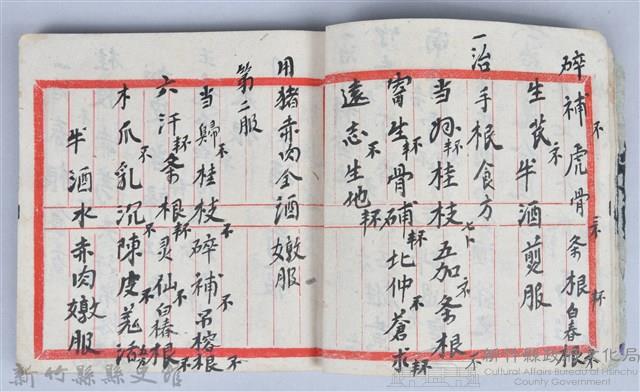 碎補不虎骨不条根杯白春根不
生芪半酒剪服
一治手根食方
当归杯桂枝七卜五加不条根不
寄生杯骨碎補杯北仲不蒼朮杯
遠志不生地杯
用猪赤肉仝酒燉服
第二服
当歸不桂枝不碎補不吊榕根不
六汗杯条根杯灵仙不白椿根不
木瓜不乳沉不陳皮不羌活
半酒水赤肉燉服
新竹縣政府文化局
Cultural Affairs Bureau of Hsinchu County Government
新竹縣縣史館